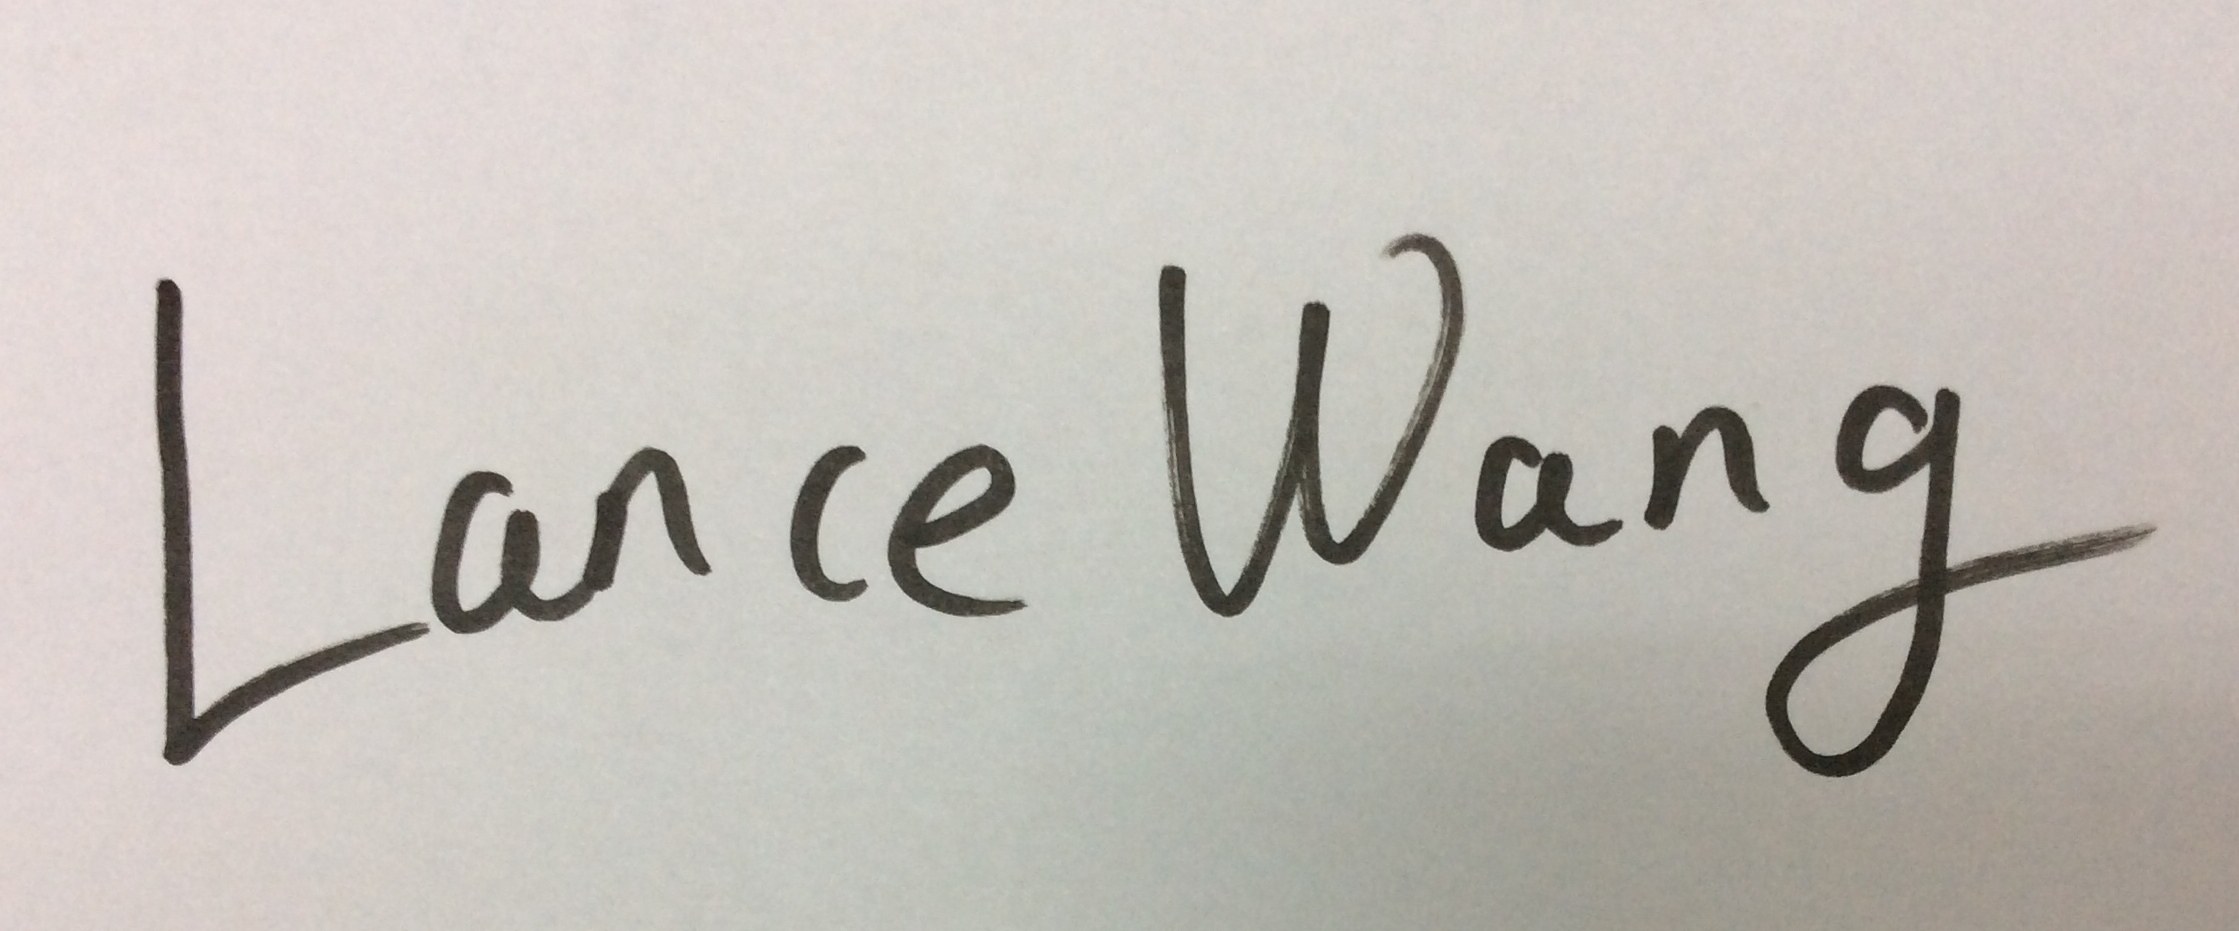 Lance Wang